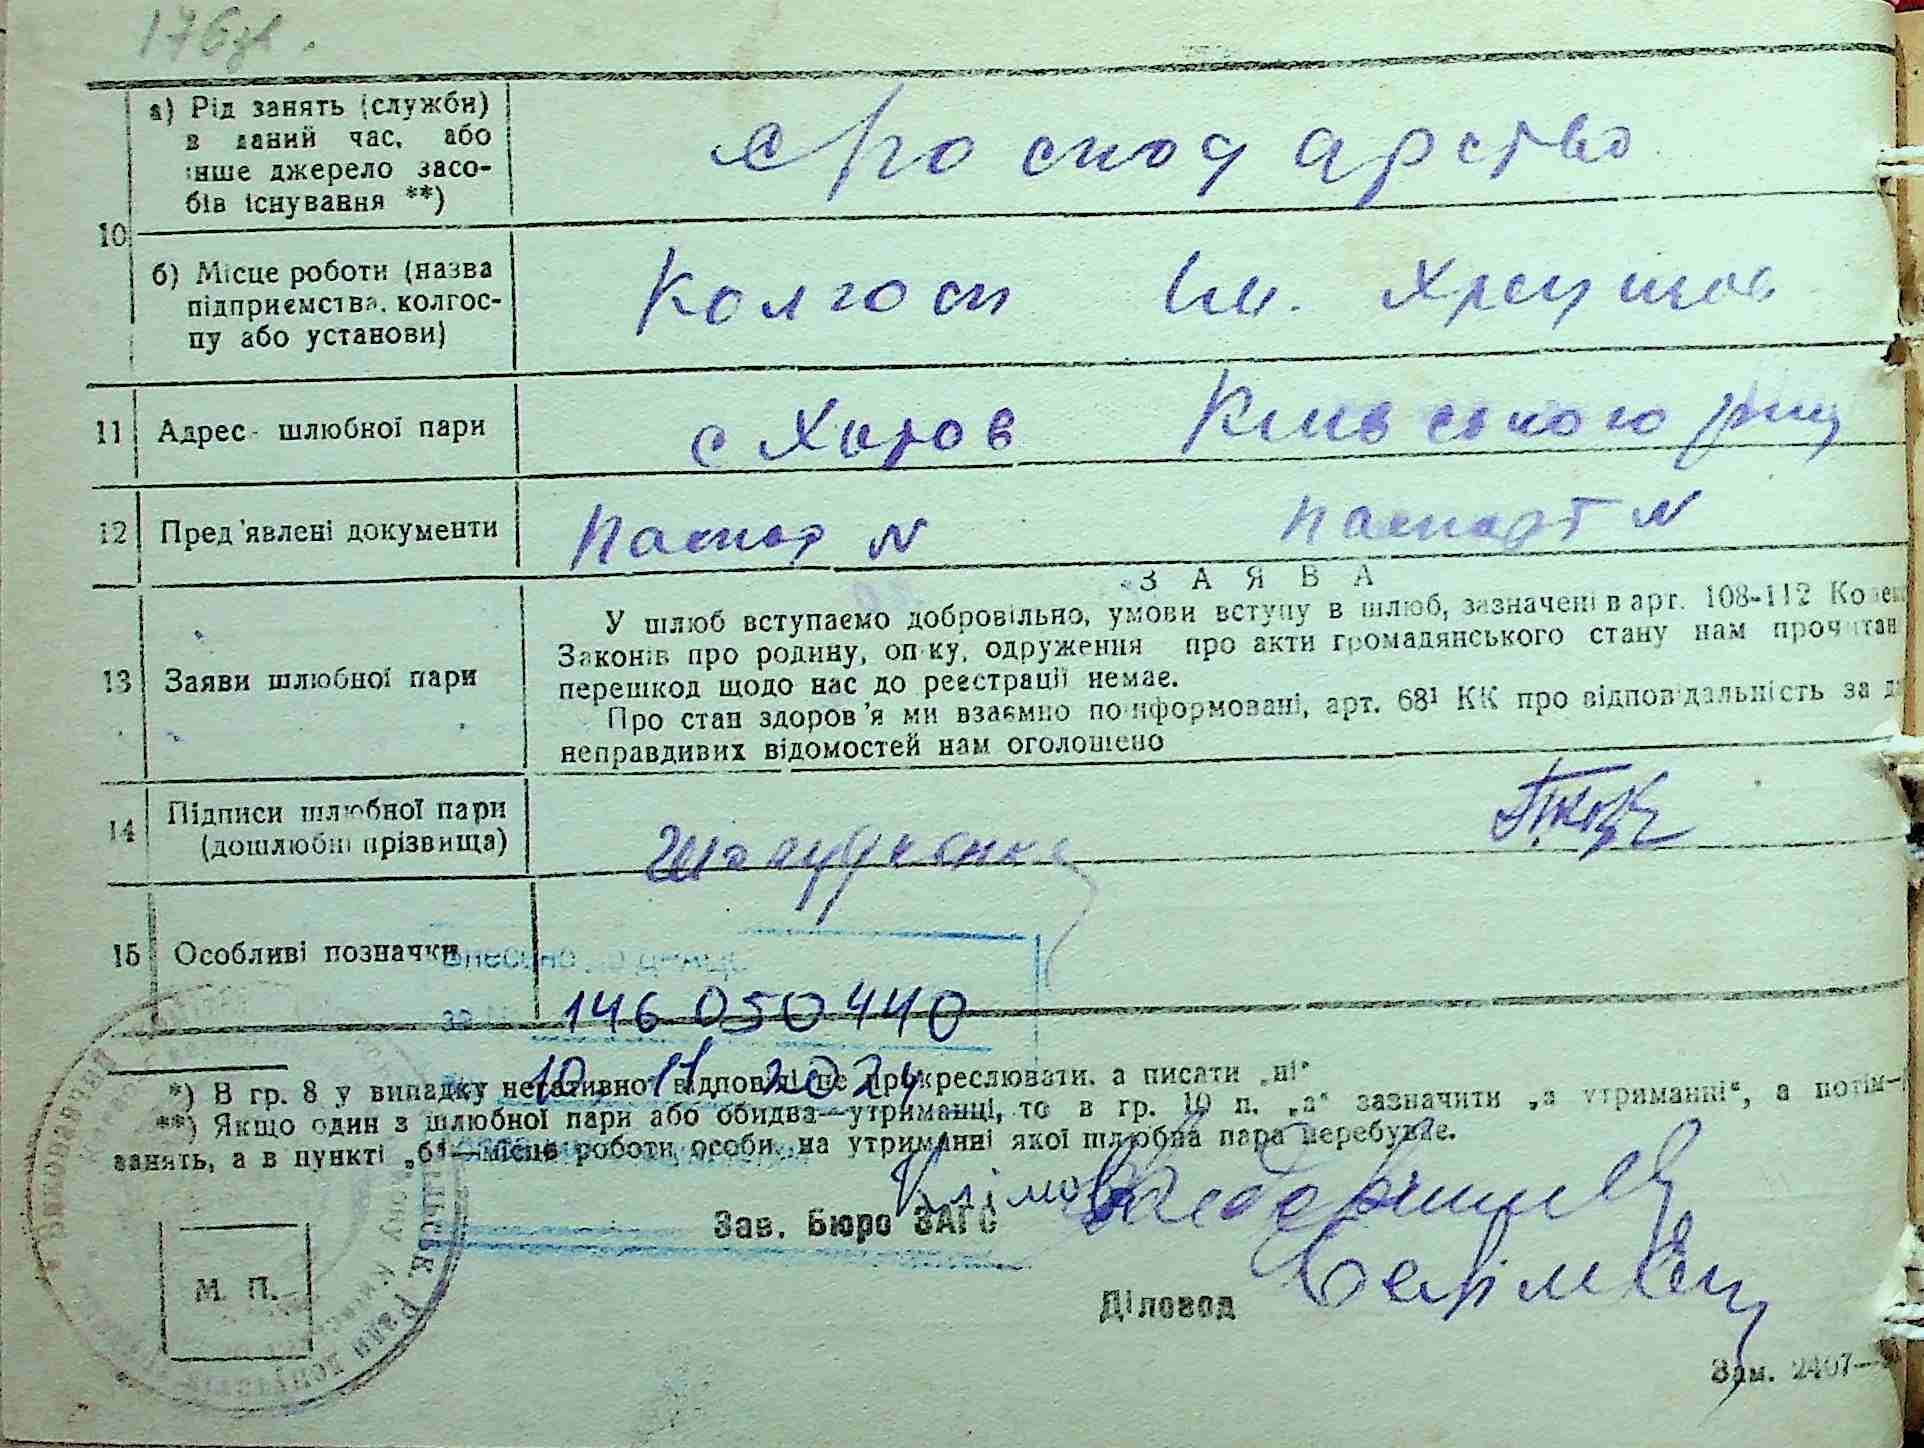 176
10
а) Рід занять (служби)
в даний час, або
інше джерело засо-
бів існування **)
с господарство
б) Місце роботи (назва
підприємства, колгос-
пу або установи)
Колгосп Ім. Хрущова
11
Адрес шлюбної пари
с Хотов Київського р-ну
12
Пред'явлені документи
Паспор N Паспорт N
ЗАЯВА
13
Заяви шлюбної пари
У шлюб вступаємо добровільно, умови вступу в шлюб, зазначені в арт. 108-112 Кодекс
Законів про родину, опіку, одруження про акти громадянського стану нам прочитан
перешкод щодо нас до реєстрації немає.
Про стан здоров'я ми взаємно поінформовані, арт. 68¹ КК про відповідальність за д
неправдивих відомостей нам оголошено
14
Підписи шлюбної пари
(дошлюбні прізвища)
15
Особливі позначки
Внесено до
за №
146 050 440
10. 11 2024
*) В гр. 8 у випадку негативної відповіді не прокреслювати, а писати „ні“
**) Якщо один з шлюбної пари або обидва—утриманці, то в гр. 10 п. „а“ зазначити „з утриманні“, а потім—
занять, а в пункті „б“—місце роботи особи, на утриманні якої шлюбна пара перебуває.
Клімов
Зав. Бюро ЗАГС
М. П.
Діловод
Зам. 2407—